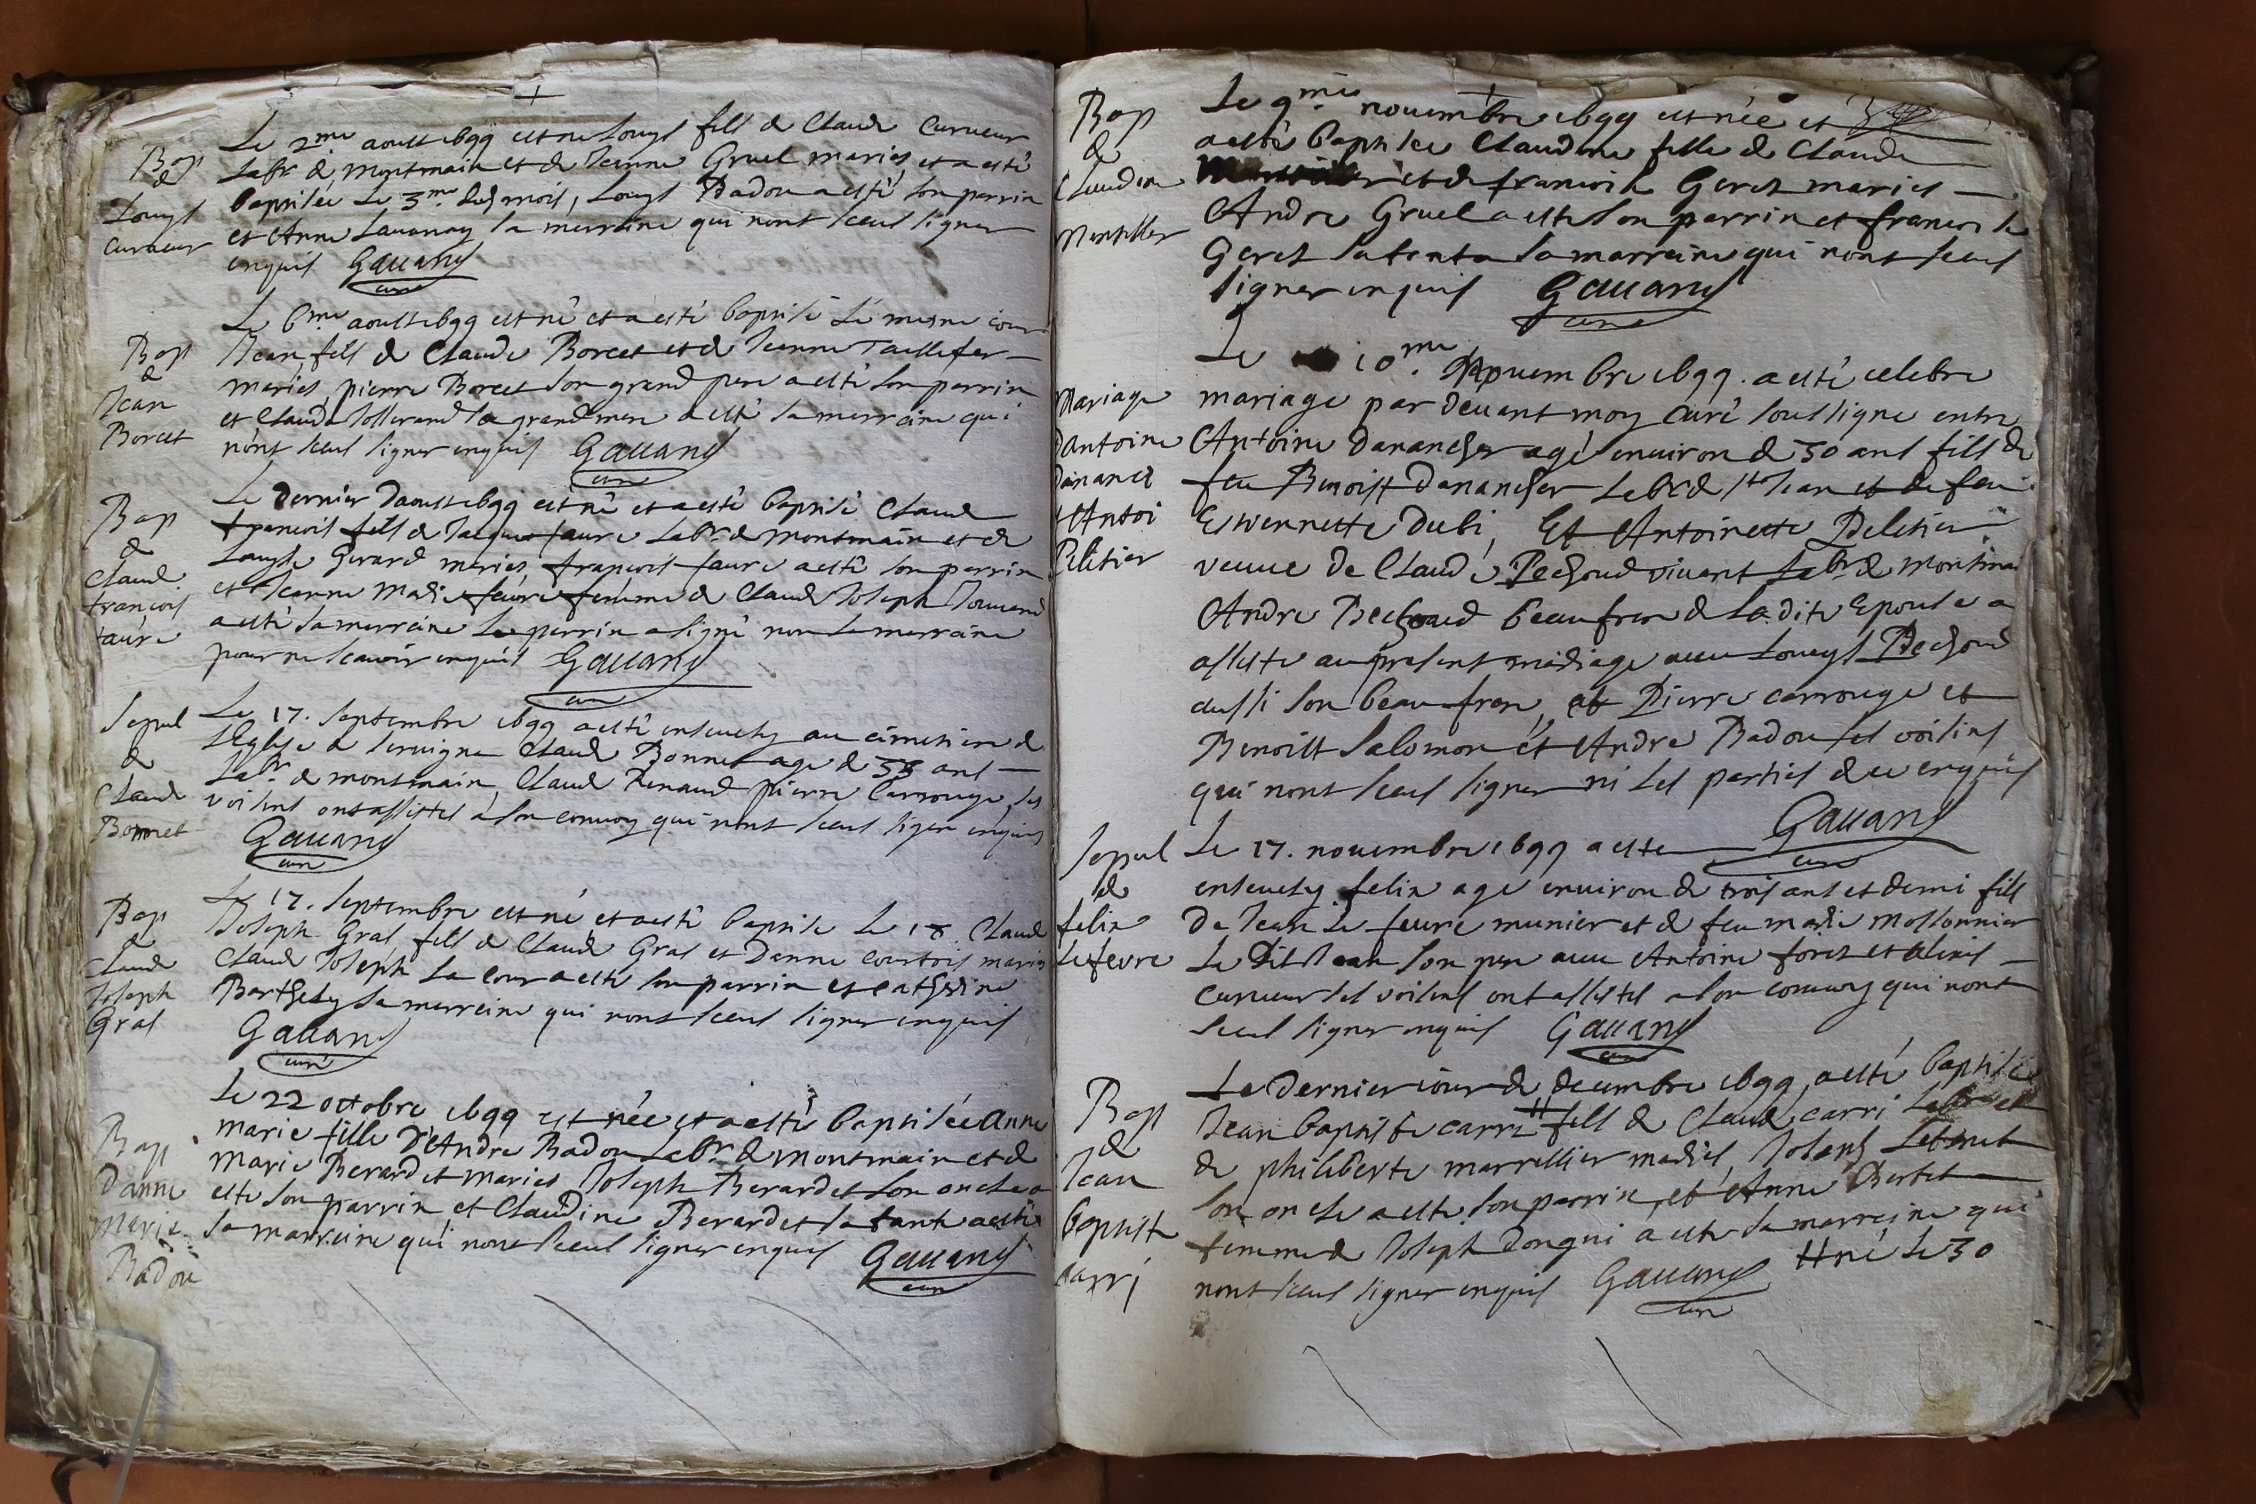 Bap
de
Louys
curueur
Le 2me aoust 1699 est né Louys fils de Claude Curueur
Labr de montmain et de Jeanne Gruel mariés et a esté
baptisée Le 3me dud mois, Louys Badou a esté son parrin
et Anne Lauanay sa marraine qui nont sceus signer
enquis Gauand
curé
Bap
de
Jean
Borcet
Le 6me aoust 1699 est né et a esté baptisé Le mesme iour
Jean fils de Claude Borcet et de Jeanne Taillefer
mariés, pierre Borcet son grand pere a esté son parrin
et Claude Tollerand sa grandmere a esté sa marraine qui
nont sceus signer enquis Gauand
curé
Bap
de
Claude
françois
faure
Le dernier Daoust 1699 est né et a esté baptisé Claude
françois fils de Jaques faure Labr de montmain et de
Louyse Girard mariés françois faure a esté son parrin
et Jeanne Marie feure femme de Claude Joseph
a esté sa marraine Le parrin a signé non La marraine
pour ne scauoir enquis Gauand
curé
Sepul
de
Claude
Bonnet
Le 17. septembre 1699 a esté enseuely au cimetiere de
Leglise de seruigna Claude Bonnet age de 55 ans
Labr de montmain, Claude Renaud pierre Carrouge ses
voisins ont assistes a son conuoy qui nont sceus signer enquis
Gauand
curé
Bap
de
Claude
Joseph
Gras
Le 17. septembre est né et a esté baptisé Le 18 Claude
Joseph Gras fils de Claude Gras et Danne Courtois mariés
Claude Joseph La cour a esté son parrin et catherine
Barthely sa marreine qui nont sceus signer enquis
Gauand
curé
Bap
Danne
Marie
Badou
Le 22 octobre 1699 est née et a esté baptisée Anne
marie fille D'Andre Badou Labr de montmain et de
Marie Berardet mariés Joseph Berardet son oncle a
esté son parrin et Claudine Berardet sa tante a esté
sa marreine qui nont sceus signer enquis Gauand
curé
Bap
de
Claudine
Le 9me nouembre 1699 est née et
a esté baptisée Claudine fille de Claude
et de francoise Geret mariés
Andre Gruel a esté son parrin et francoise
Geret sa tante sa marreine qui nont sceus
signer enquis Gauand
curé
Mariage
dantoine
Dananch
et Antoi
Pelitier
Le 10me nouembre 1699. a esté celebré
mariage par deuant moy curé soussigné entre
Antoine Danancher agé enuiron de 30 ans fils de
feu Benoist Danancher Labr de st Jean et de feue
Estiennette Dubi, Et Antoinette Peletier
veuue de Claude Pechoud viuant Labr de montmai
Andre Bechoud beaufrere de Ladite Epouse a
assisté au present mariage auec Louys Bechoud
aussi son beaufrere, et Pierre carrouge et
Benoist Salomon et Andre Badou ses voisins
qui nont sceus signer ni Les parties de ce enquis
Gauand
curé
Sepul
de
felix
Lefevre
Le 17. nouembre 1699 a esté
enseuely felix age enuiron de trois ans et demi fils
de Jean Le feure munier et de feu marie Mossonnier
Le dit Jean son pere auec Antoine foret et Alexis
curueur ses voisins ont assistes a son conuoy qui nont
sceus signer enquis Gauand
curé
Bap
de
Jean
baptiste
carri
Le Dernier iour de decembre 1699 a esté baptisé
Jean baptiste carri # fils de Claude carri Labr et
de philiberte marrellier mariés, Joseph
son oncle a esté son parrin, et Anne Bertet
femme de Joseph Donqui a esté sa marreine qui
nont sceus signer enquis Gauand # né Le 30
curé